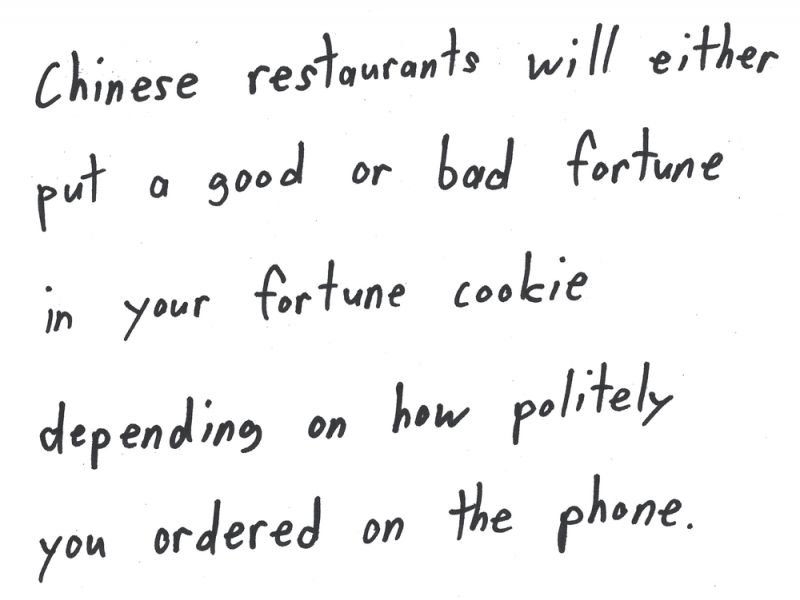 Chinese restaurants will either
put a good or bad fortune
in your fortune cookie
depending on how politely
you ordered on the phone.